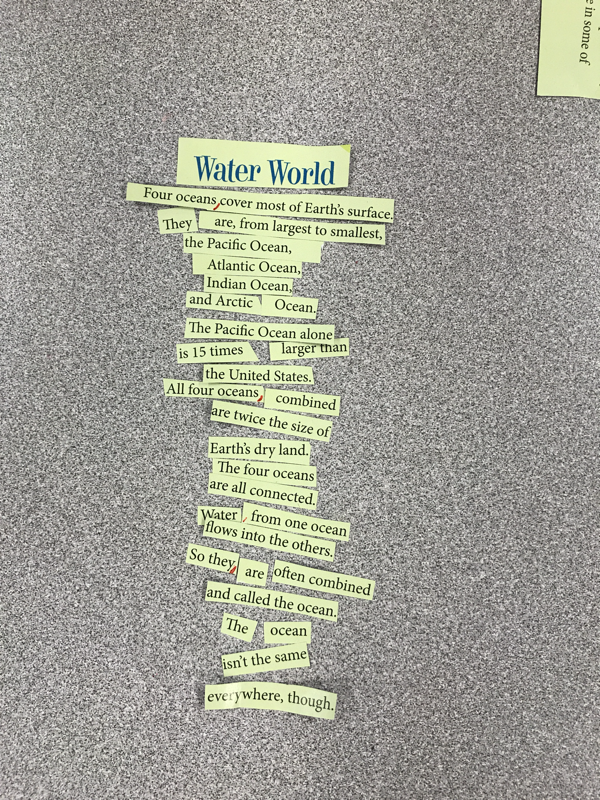 Water World
Four oceans cover most of Earth's surface.
They are, from largest to smallest,
the Pacific Ocean,
Atlantic Ocean,
Indian Ocean,
and Arctic Ocean.
The Pacific Ocean alone
is 15 times larger than
the United States.
All four oceans combined
are twice the size of
Earth's dry land.
The four oceans
are all connected.
Water from one ocean
flows into the others.
So they are often combined
and called the ocean.
The ocean
isn't the same
everywhere, though.
e in some of